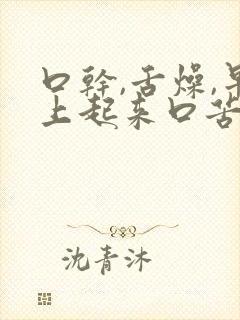 口幹,舌燥,早
上起来口苦
沈青沐